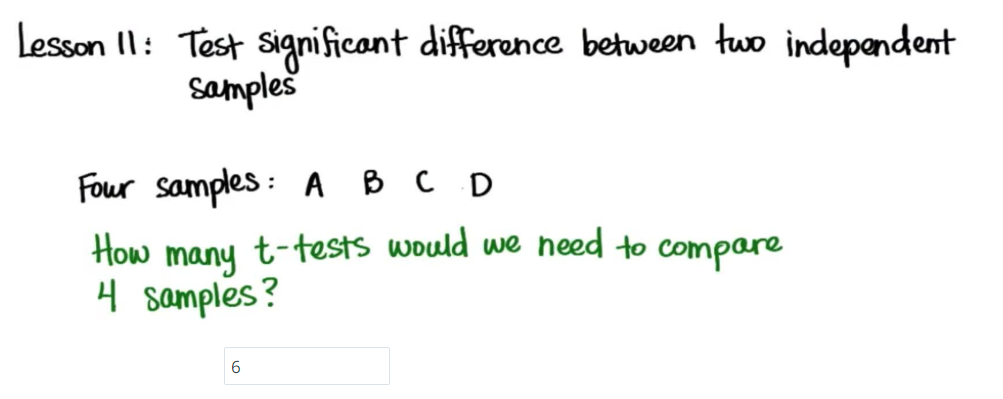 Lesson 11: Test significant difference between two independent
samples
Four samples: A B C D
How many t-tests would we need to compare
4 samples?
6